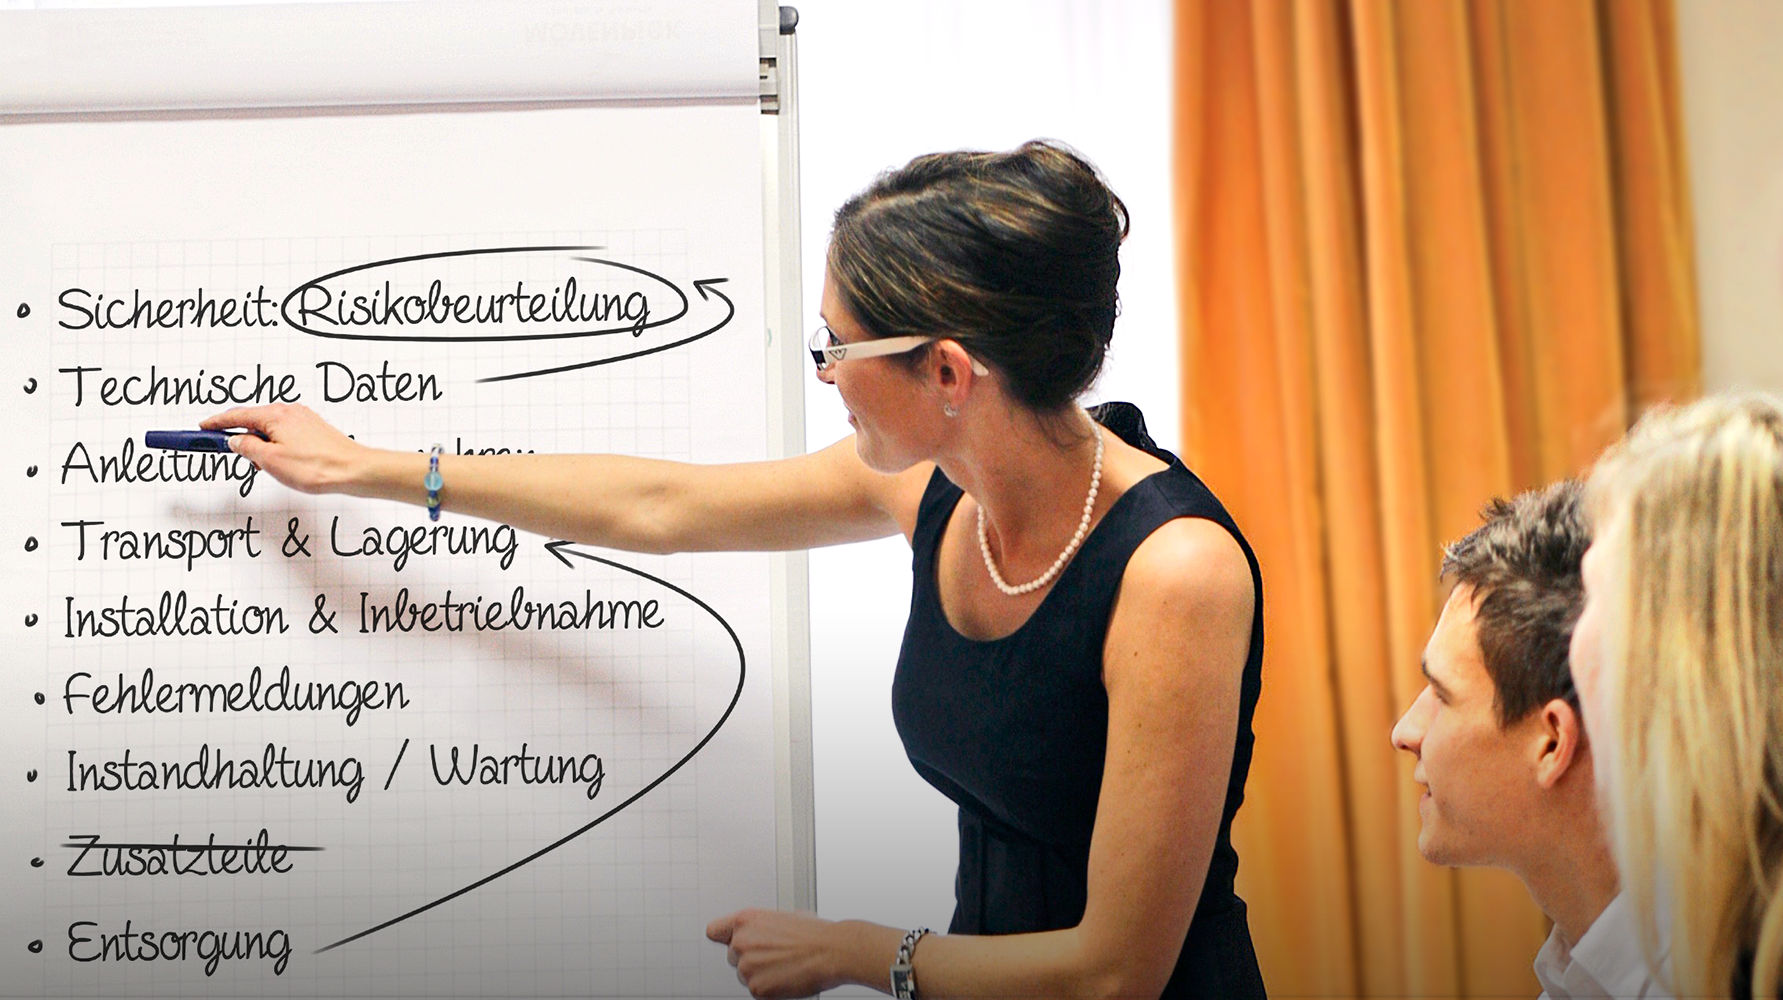 • Sicherheit: Risikobeurteilung
• Technische Daten
• Anleitung
• Transport & Lagerung
• Installation & Inbetriebnahme
• Fehlermeldungen
• Instandhaltung / Wartung
• Zusatzteile
• Entsorgung